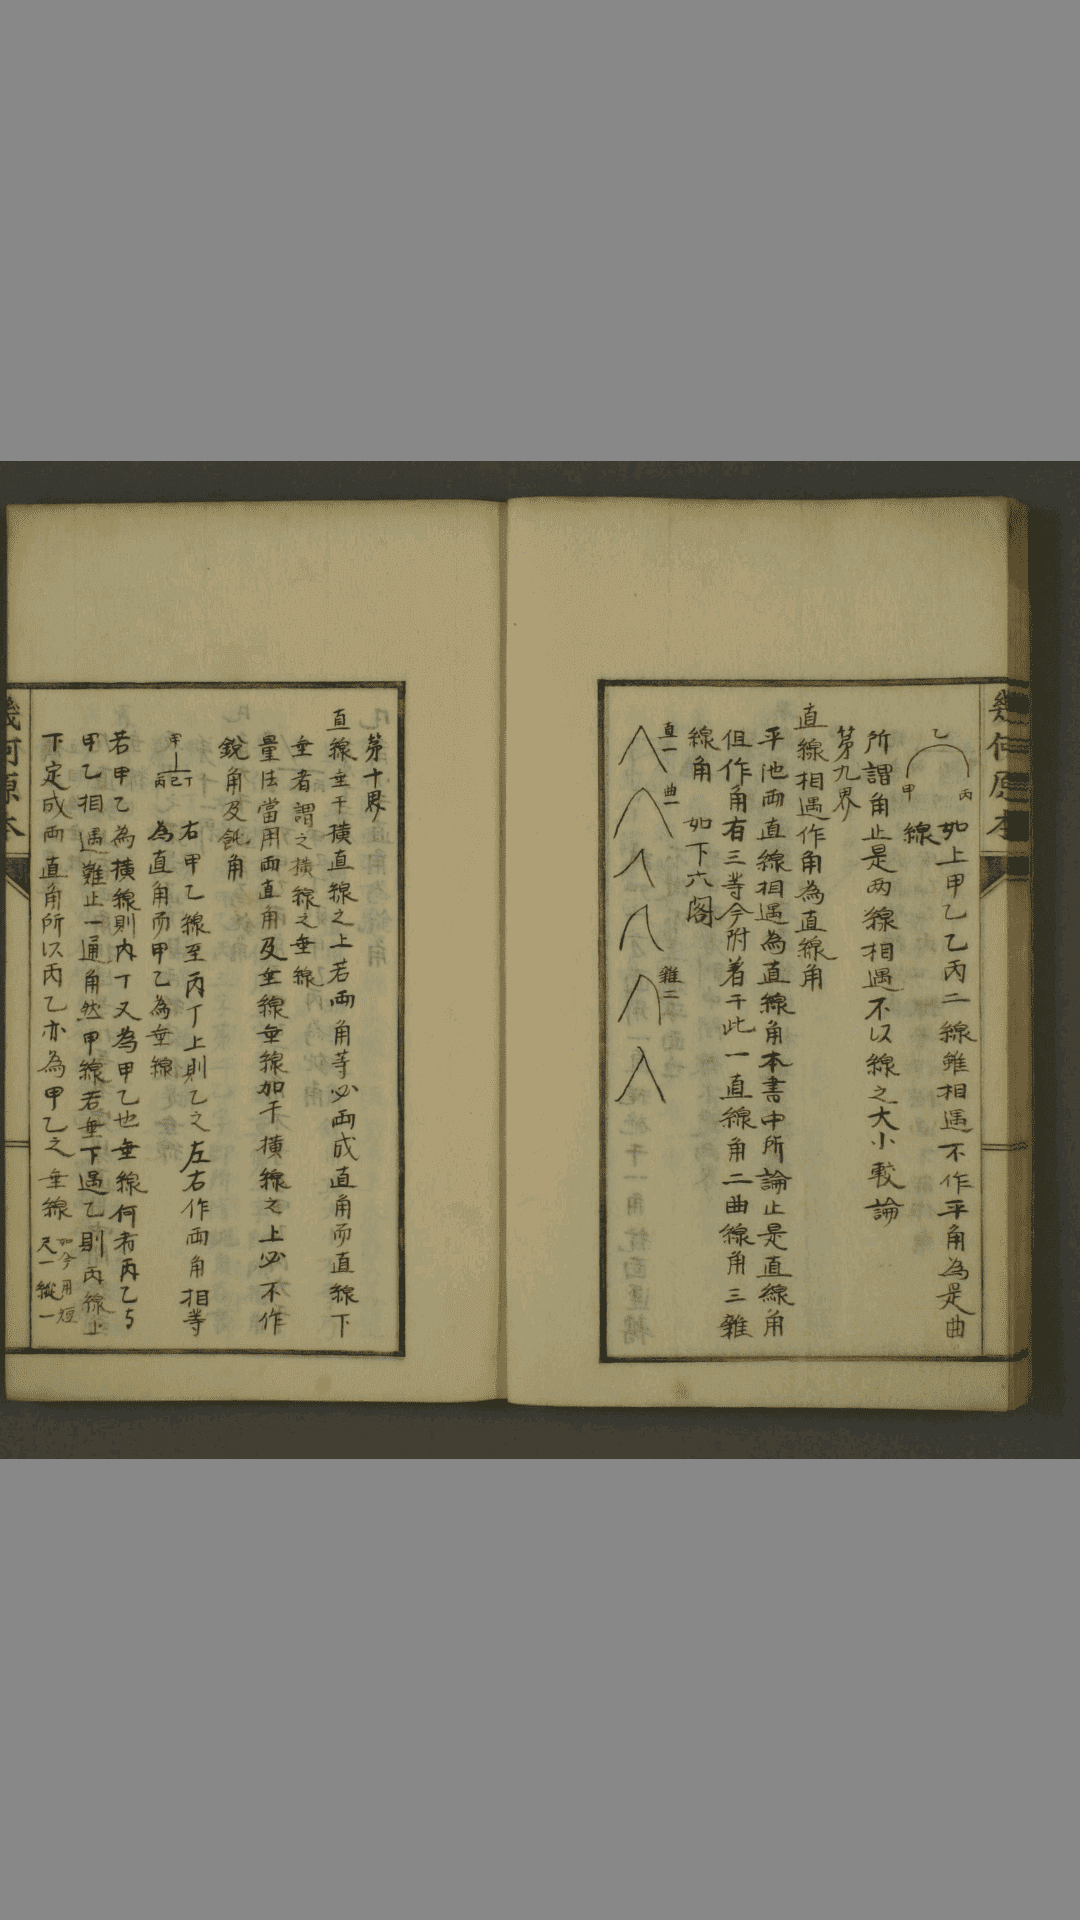 幾何原本
乙
甲
丙
如上甲乙乙丙二線雖相遇不作平角為是曲
線
所謂角止是两線相遇不以線之大小較論
第九界
直線相遇作角為直線角
平地两直線相遇為直線角本書中所論止是直線角
但作角有三等今附着于此一直線角二曲線角三雜
線角 如下六图
直一
曲一
雜二
第十界
直線垂于横直線之上若两角等必两成直角而直線下
垂者謂之横線之垂線
量法當用两直角及垂線垂線加于横線之上必不作
銳角及鈍角
甲
丙乙丁
右甲乙線至丙丁上則乙之左右作两角相等
為直角而甲乙為垂線
若甲乙為横線則丙丁又為甲乙也垂線何者丙乙与
甲乙相遇雖止一通角然甲線若垂下過乙則丙線上
下定成两直角所以丙乙亦為甲乙之垂線 如今用短
尺一縱一
幾何原本